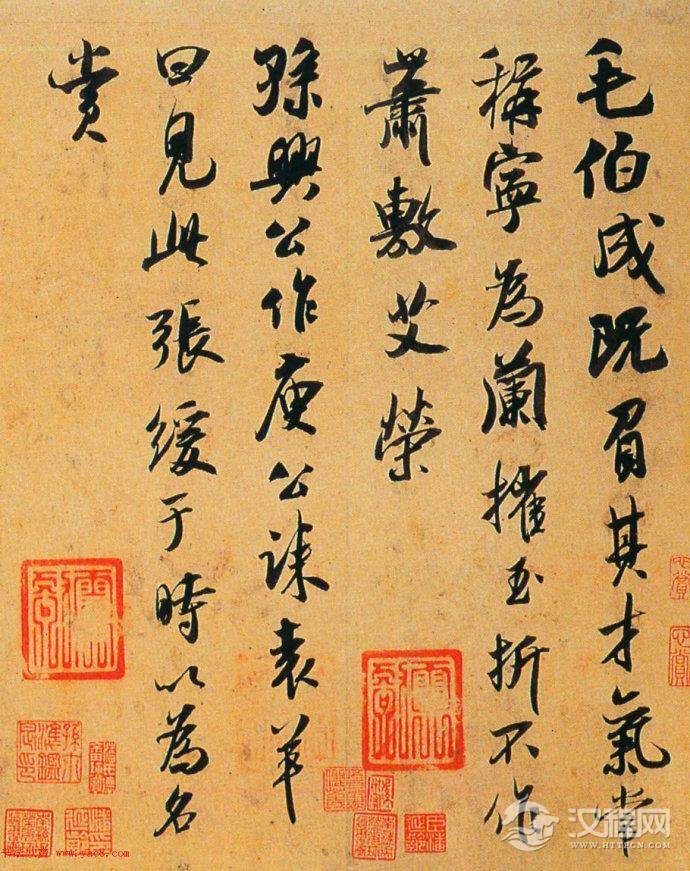 毛伯成既負其才氣常
稱寧為蘭摧玉折不作
蕭敷艾榮
孫興公作庾公誄袁羊
曰見此張緩于時以為名
賞
汉程网
WWW.HTTPCN.COM
www.yac8.com